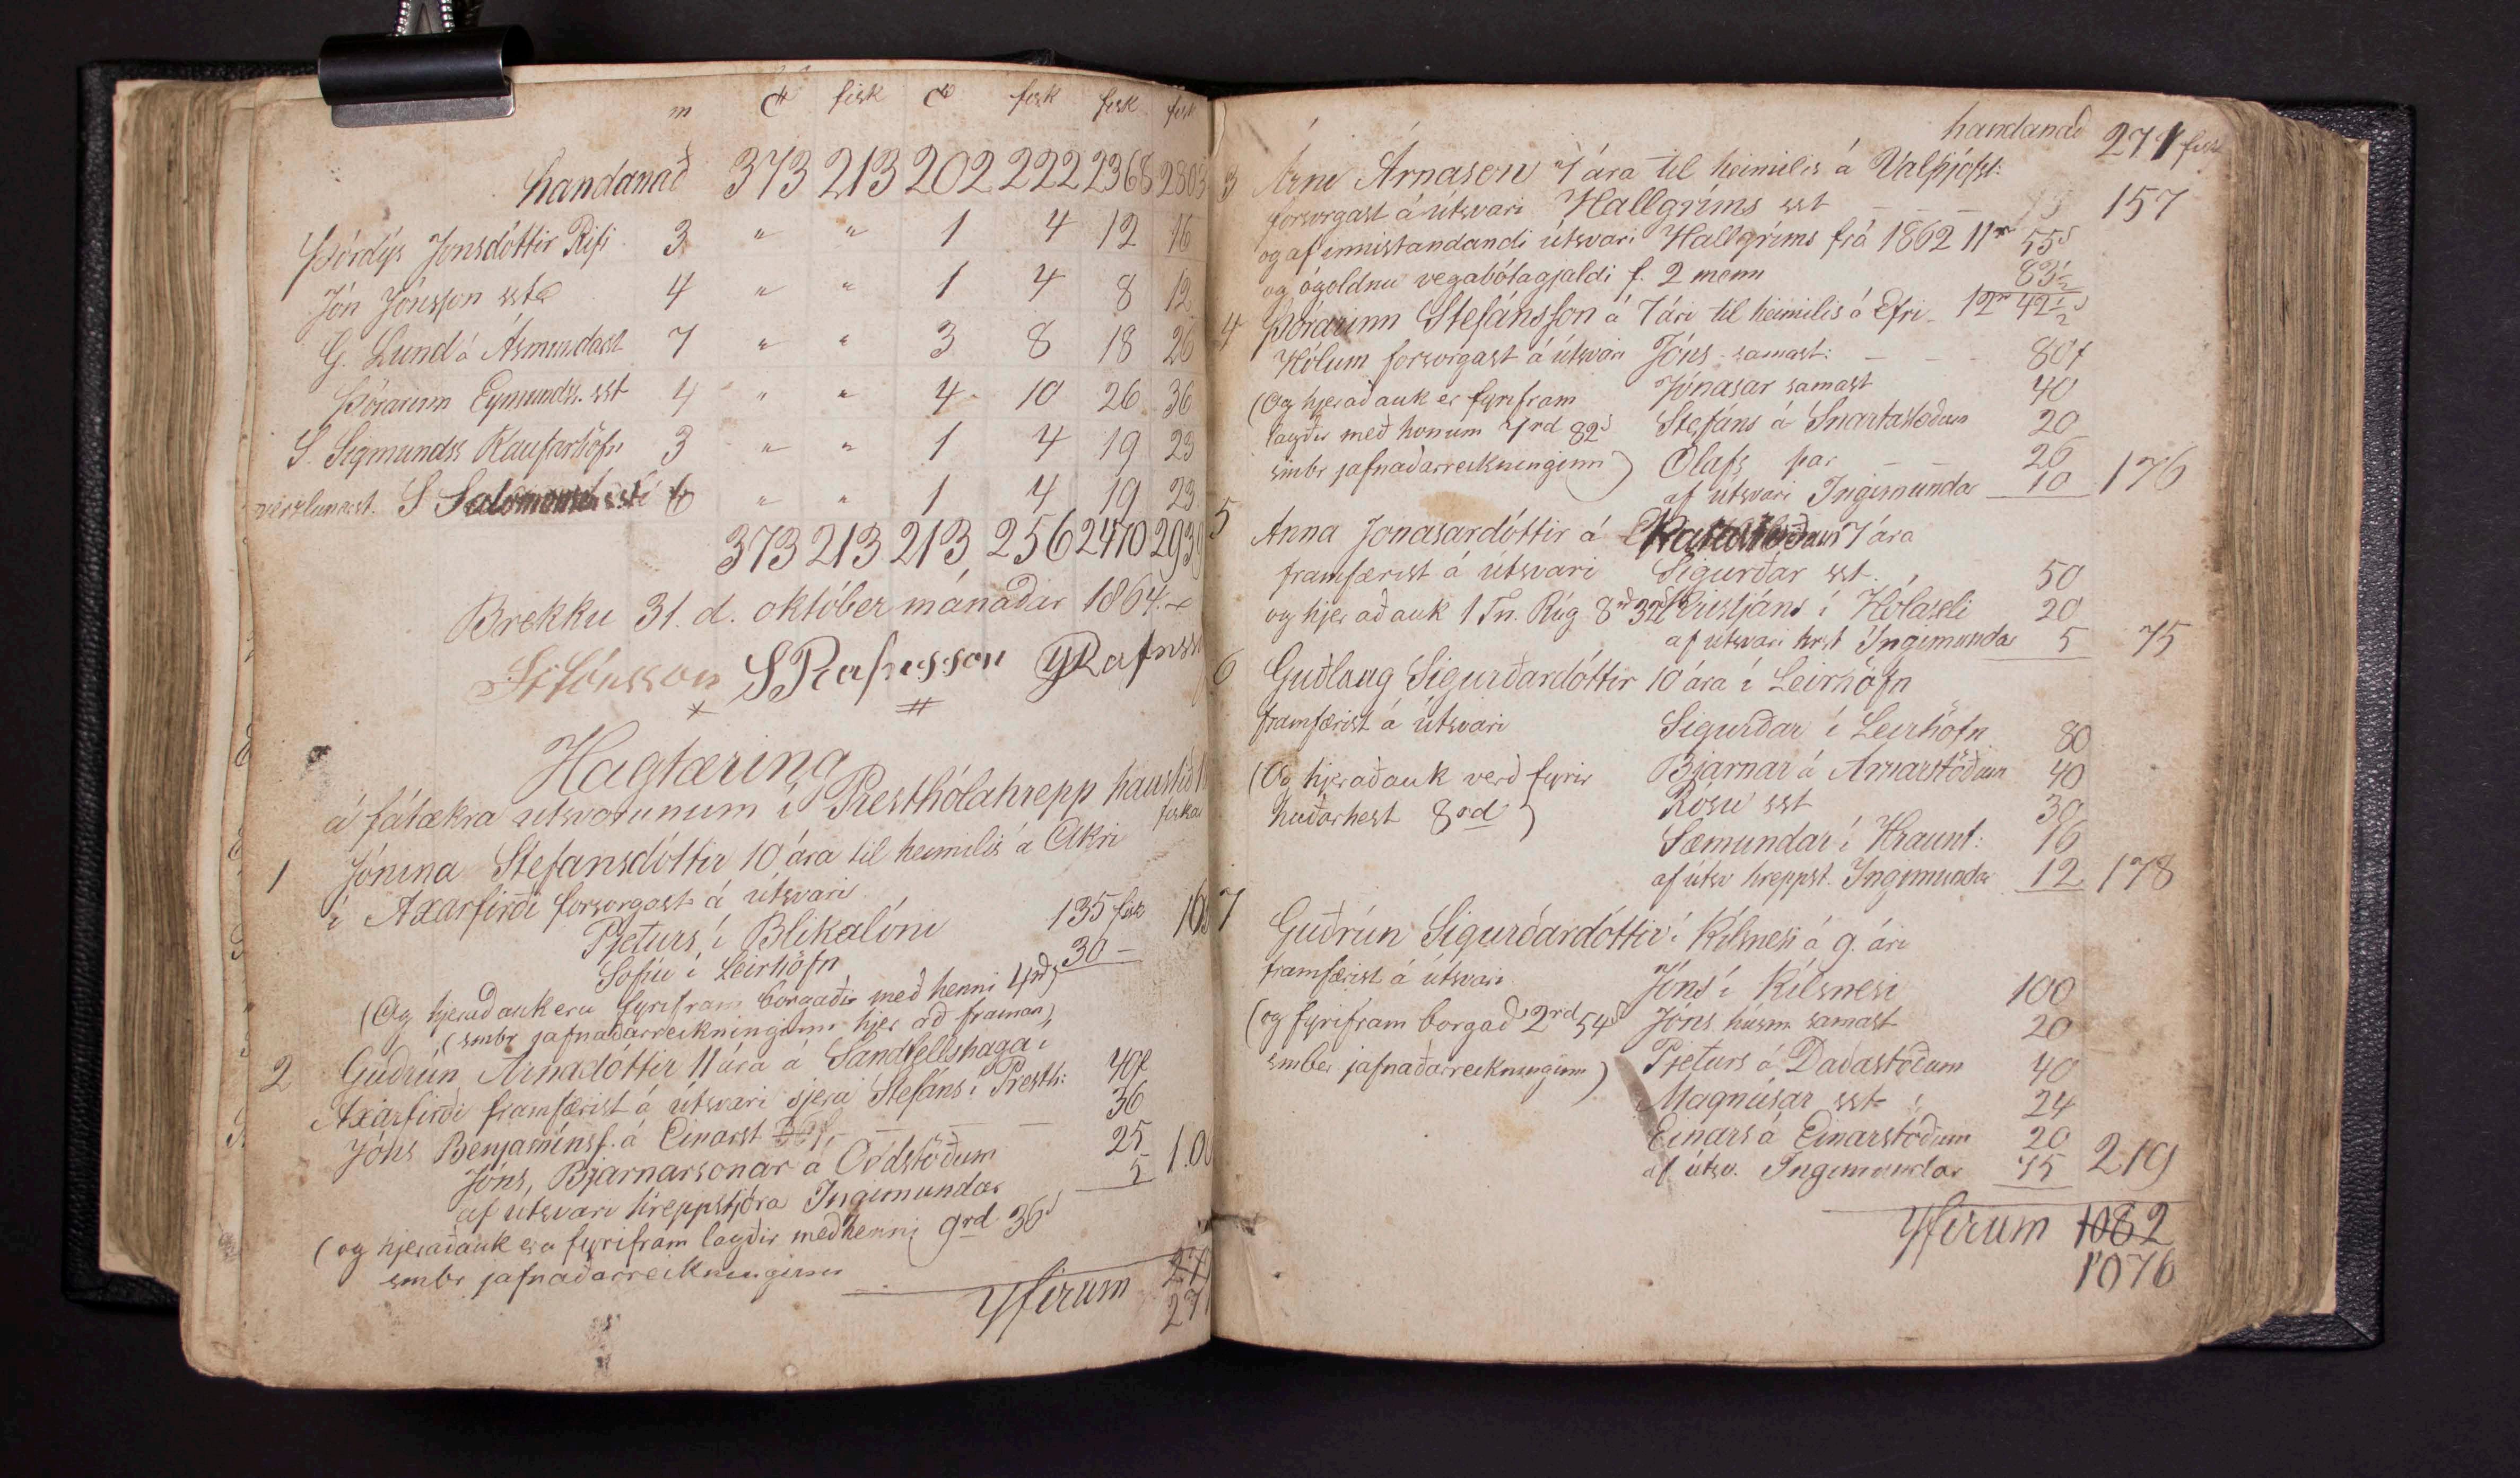 m fisk fisk fisk fisk
handanað 373 213 202 222 2368 2803
Þórdýs Jonsdóttir Rifi 3 " " 1 4 12 16
Jón Jónsson sst 4 " " 1 4 8 12
G. Lund á Ásmundarst 7 " " 3 8 18 26
Þórarinn Eymundss. sst 4 " " 4 10 26 36
S. Sigmundss Raufarhöfn 3 " " 1 4 19 23
verzlunarst. S 6 " " 1 4 19 23
373 213 213 256 2470 2939
Brekku 31. d. október mánaðar 1864.
St Jónsson S Rafnsson Rafnss
Hagtæring
á fátækra utsvörunum í Presthólahrepp haustið
fiskar
1 Jónina Stefansdóttir 10 ára til heimilis á Akri
í Axarfirði forsorgast á útsvari
Pjeturs í Blikalóni 135 fisk
Sofíu í Leirhöfn 30 –
(Og hjeraðauk eru fyrifram borgaðir með henni 4rd
(smbr jafnaðarreikninginn hjer að framan)
2 Guðrún Arnadóttir 11 ára á Sandfellshaga í
Axarfirði framfærist á útsvari sjera Stefáns í Presth: 40f
Jóns Benjamínsf. á Einarst. 36
Jóns, Bjarnarsonar á Oddstöðum 25
af útsvari hreppstjóra Ingimundar 5
(og hjeraðauk eru fyrifram lagðir með henni 9rd 36s
smbr jafnaðarreikninginn
Yfirum
handanað 271 fisk
3 Árni Árnason 7 ára til heimilis á Valþjófst:
forsorgast á útsvari Hallgríms sst – – – 157
og af innistandandi útsvari Hallgríms frá 1862 11r 55s
og ógoldnu vegabótagjaldi f. 2 menn 83½
12r 42½s
4 Þórarinn Stefánsson á 7 ári til heimilis á Efri-
Hólum forsorgast á útsvari Jóns samast: – – 80f
(Og hjeraðauk er fyrifram Jónasar samast 40
lagðir með honum 7rd 82s Stefáns á Snartastöðum 20
smbr jafnaðarreikninginn) Olafs þar – – 26
af útsvari Ingimundar 10 176
5 Anna Jonasardóttir á 7 ára
framfærist á útsvari Sigurðar sst. 50
og hjer að auk 1 Tn. Rúg 8rd 32s Kristjáns í Hólaseli 20
af útsvari hrst Ingimundar 5 75
6 Guðlaug Sigurðardóttir 10 ára í Leirhöfn
framfærist á útsvari Sigurðar í Leirhöfn 80
(Og hjeraðauk verð fyrir Bjarnar á Arnarstöðum 40
húðarhest 8rd) Rósu sst 30
Sæmundar í Hraunt: 16
af útsv hreppst. Ingimundar 12 178
7 Guðrún Sigurðardóttir í Kílsnesi á 9. ári
framfærist á útsvari Jóns í Kílsnesi 100
(og fyrifram borgað 2rd 54s Jóns húsm samast 20
smber jafnaðarreikninginn) Pjeturs á Daðastöðum 40
Magnúsar sst 24
Einars á Einarstöðum 20
af útsv. Ingimundar 15 219
Yfirum 1082
1076